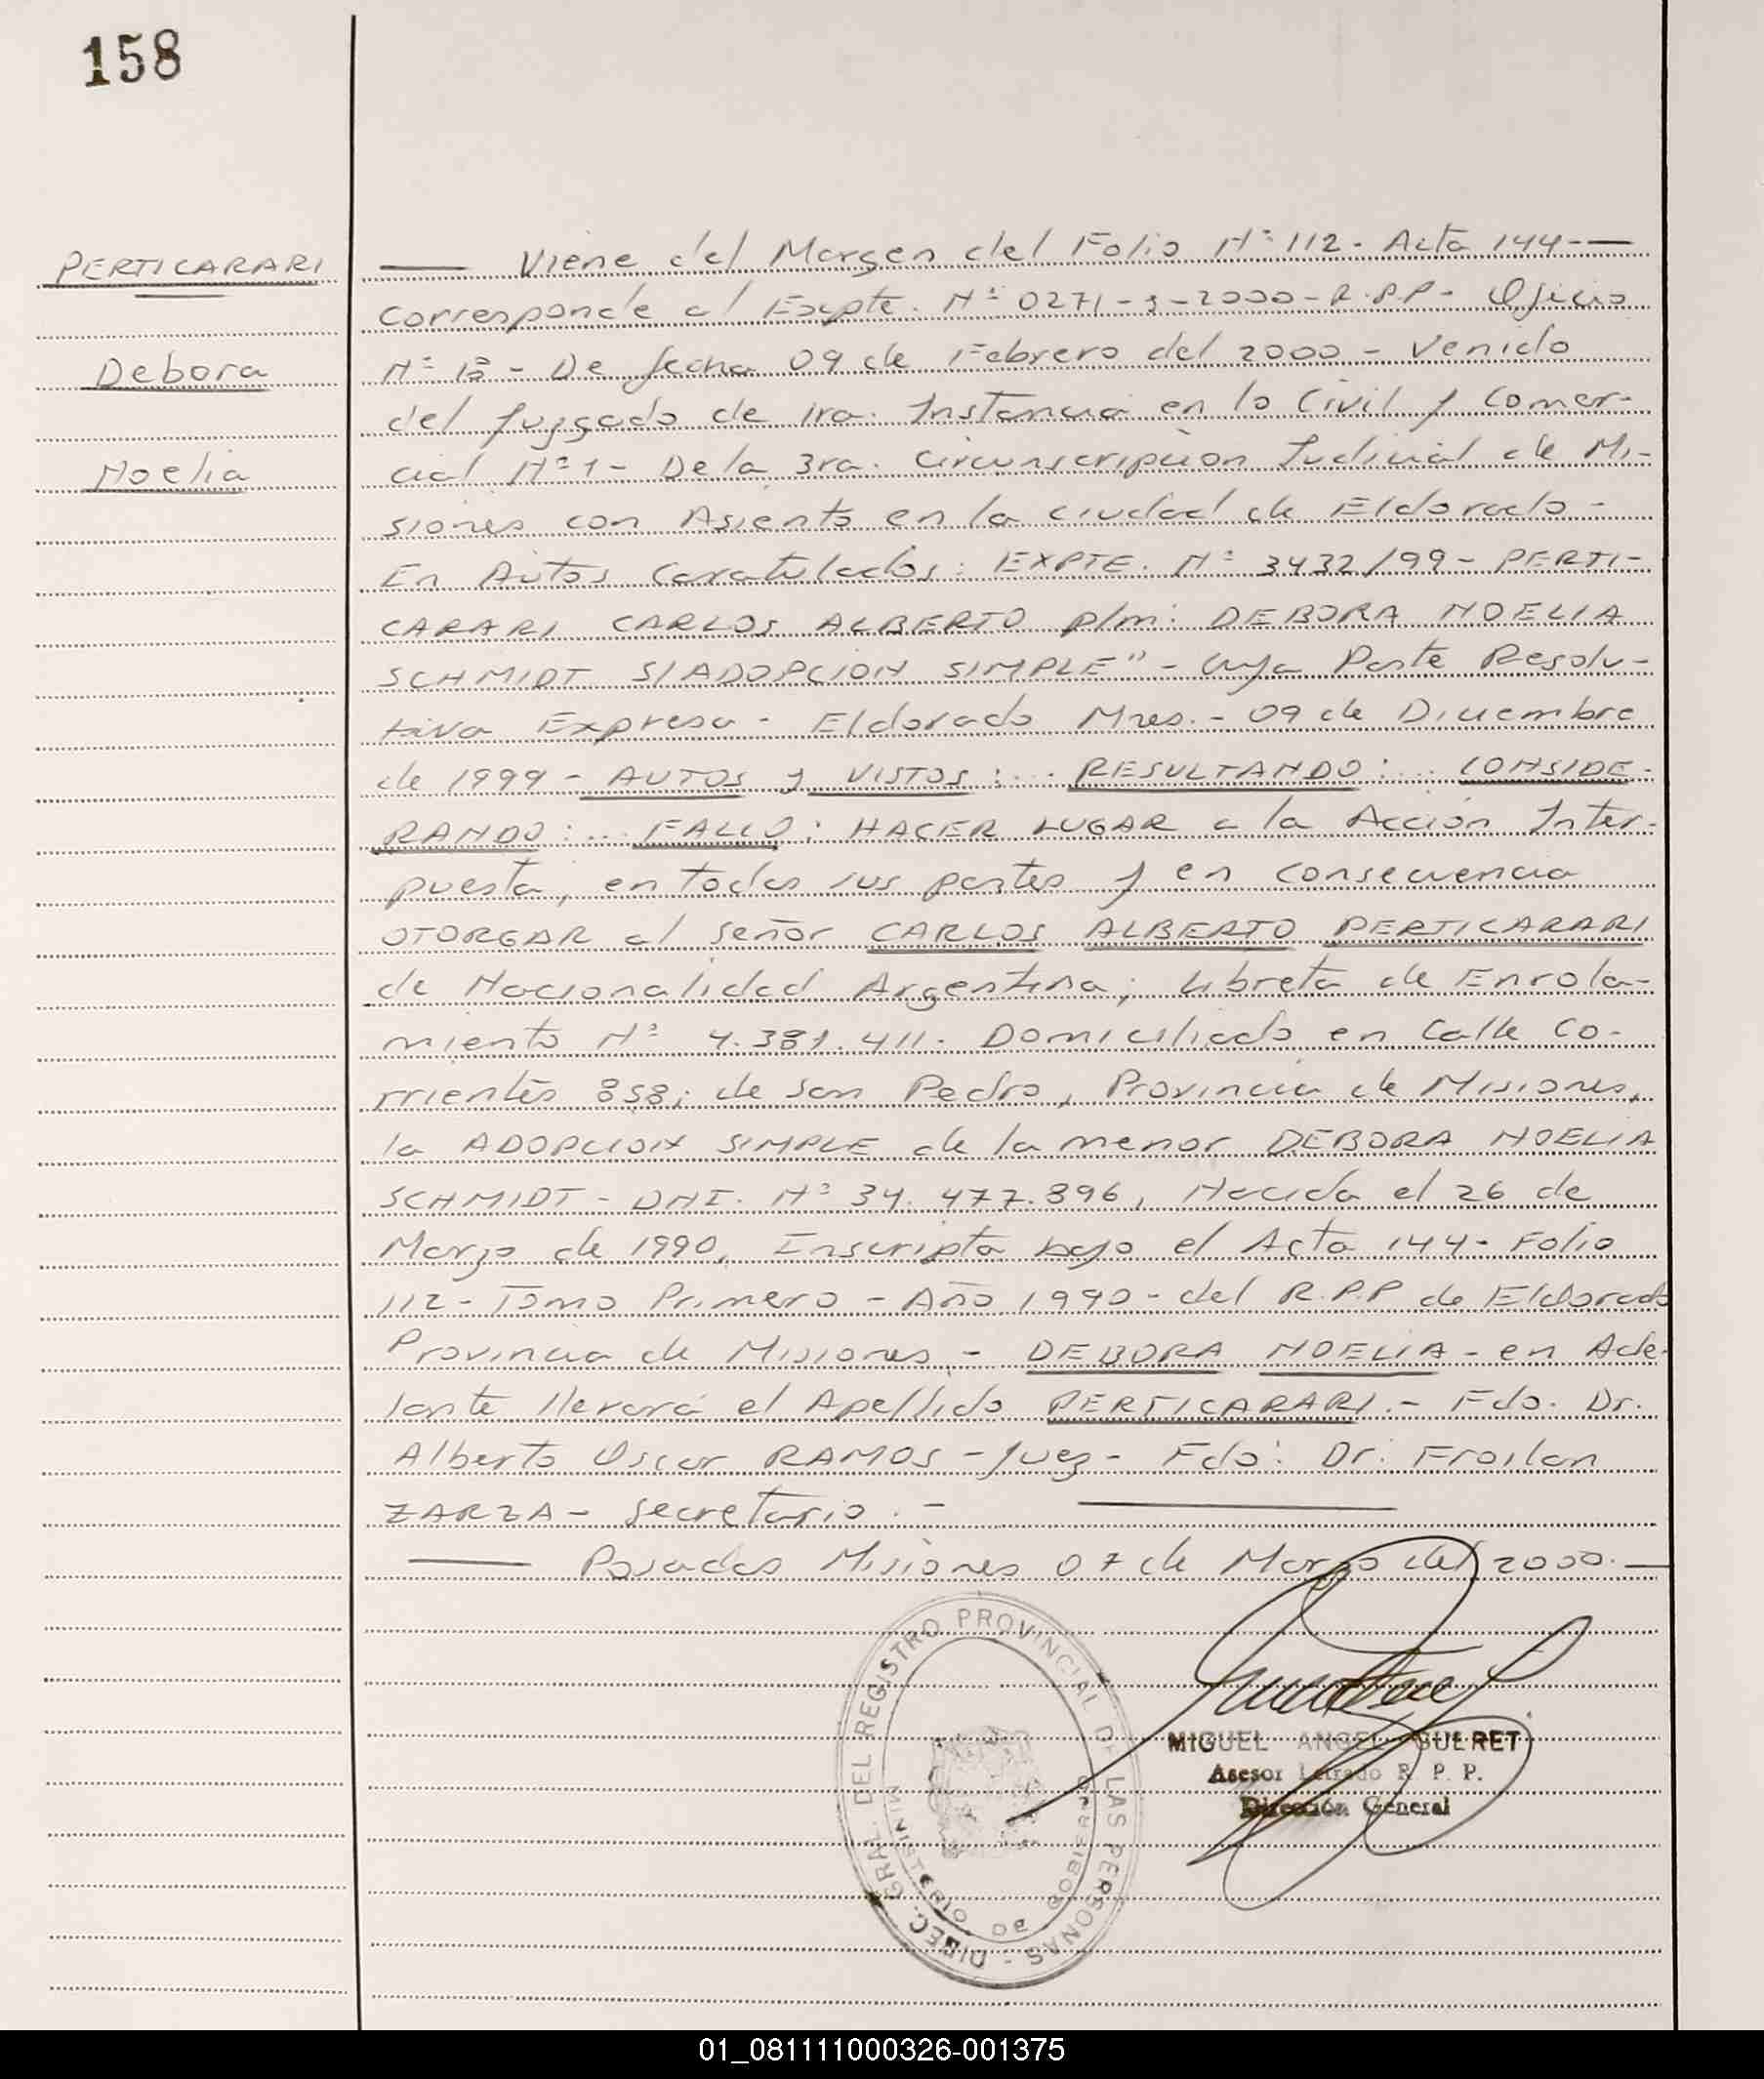 158
PERTICARARI
Debora
Noelia
Viene del Margen del Folio Nº 112 - Acta 144 -
Corresponde al Expte. Nº 0271-3-2000 - R.P.P - Oficio
Nº - De fecha 09 de Febrero del 2000 - Venido
del Juzgado de 1ra. Instancia en lo Civil y Comer-
cial Nº 1 - De la 3ra. Circunscripción Judicial de Mi-
siones con Asiento en la Ciudad de Eldorado -
En Autos Caratulados: EXPTE. Nº 3432/99 - PERTI-
CARARI CARLOS ALBERTO p/m: DEBORA NOELIA
SCHMIDT S/ADOPCION SIMPLE" - Cuya Parte Resolu-
tiva Expresa - Eldorado Mnes. - 09 de Diciembre
de 1999 - AUTOS y VISTOS:... RESULTANDO:... CONSIDE-
RANDO:... FALLO: HACER LUGAR a la Acción Inter-
puesta, en todas sus partes y en consecuencia
OTORGAR al señor CARLOS ALBERTO PERTICARARI
de Nacionalidad Argentina; Libreta de Enrola-
miento Nº 4.381.411. Domiciliado en Calle Co-
rrientes 858; de San Pedro, Provincia de Misiones,
la ADOPCION SIMPLE de la menor DEBORA NOELIA
SCHMIDT - DNI. Nº 34.477.896, Nacida el 26 de
Marzo de 1990, Inscripta bajo el Acta 144 - Folio
112 - Tomo Primero - Año 1990 - del R.P.P de Eldorado
Provincia de Misiones, - DEBORA NOELIA - en Ade-
lante llevará el Apellido PERTICARARI. - Fdo. Dr.
Alberto Oscar RAMOS - Juez - Fdo: Dr. Froilan
ZARZA - Secretario. -
Posadas Misiones 07 de Marzo del 2000. -
DIREC. GRAL. DEL REGISTRO PROVINCIAL DE LAS PERSONAS -
MINISTERIO DE GOBIERNO
MIGUEL ANGEL GULRET
Asesor Letrado R. P. P.
Dirección General
01_081111000326-001375